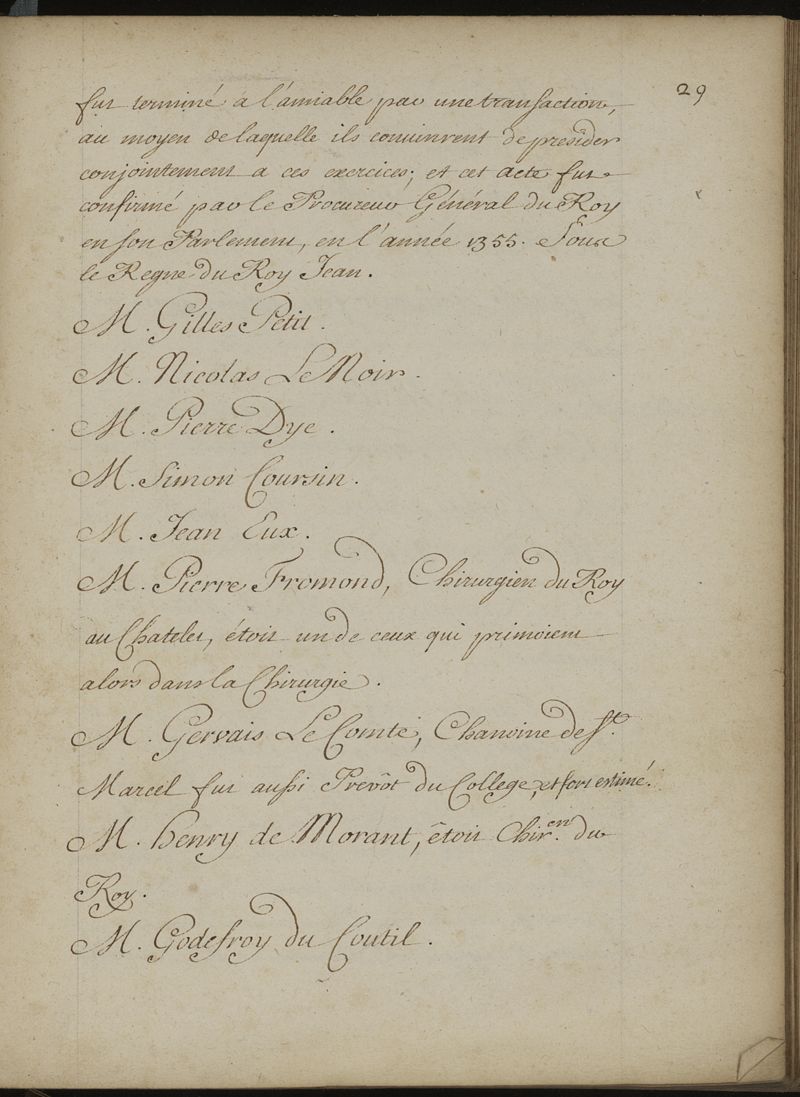 29
fut terminé a l'amiable par une transaction,
au moyen de laquelle ils convinrent de presider
conjointement a ces exercices; et cet acte fut
confirmé par le Procureur Général du Roy
en son Parlement, en l'année 1355. Sous
le Regne du Roy Jean.
M. Gilles Petit.
M. Nicolas Le Noir.
M. Pierre Dye.
M. Simon Coursin.
M. Jean Eux.
M. Pierre Fromond, Chirurgien du Roy
au Chatelet, étoit un de ceux qui primoient
alors dans la Chirurgie.
M. Gervais Le Comte, Chanoine de St.
Marcel fut aussi Prevôt du College, et fort estimé.
M. henry de Morant, étoit Chir.en du
Roy.
M. Godefroy du Coutil.